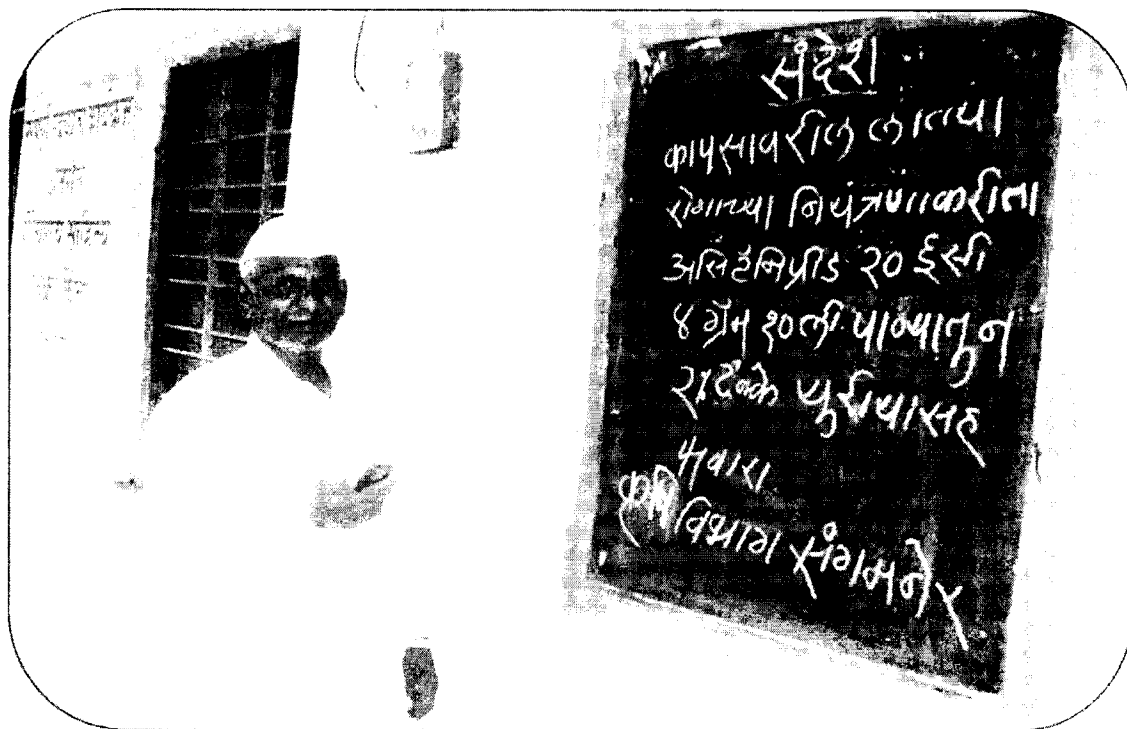 संदेश
कापसावरील लाल्या
रोगाच्या नियंत्रणाकरीता
असिटॅनिप्रीड २० ईसी
४ ग्रॅम १०ली. पाण्यातुन
२% टक्के युरीयासह
फवारा
कृषि विभाग संगमनेर